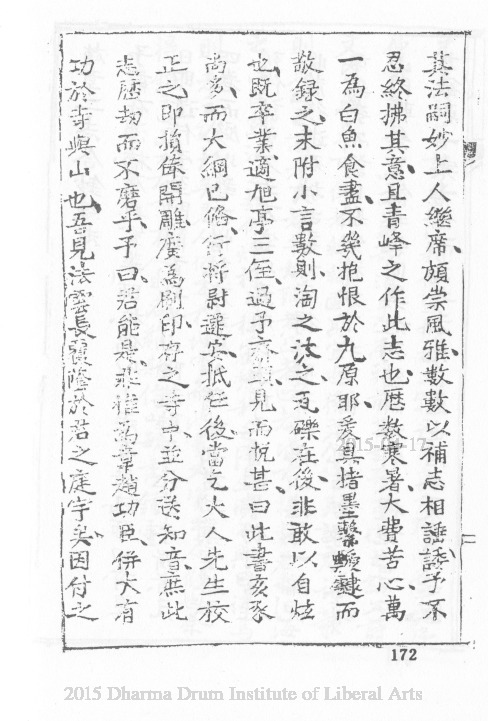 其法嗣妙上人繼席頗崇風雅數數以補志相諈諉予不
忍終拂其意且青峰之作此志也歷數寒暑大費苦心萬
一為白魚食盡不幾抱恨於九原耶爰真楮墨 而
敬錄之末附小言數則淘之汰之瓦礫在後非敢以自炫
也既卒業適旭亭三侄過予齋頭見而悅甚曰此書亥豕
尚多而大綱已備 將尉 安抵任後當乞大人先生校
正之即損俸開雕廣為刷印存之寺中並分送知音庶此
志歷劫而不磨乎予曰君能是非惟為韋趙功臣併大有
功於寺與山也吾見法雲長覆蔭於君之庭宇矣因付之
172
2015 Dharma Drum Institute of Liberal Arts